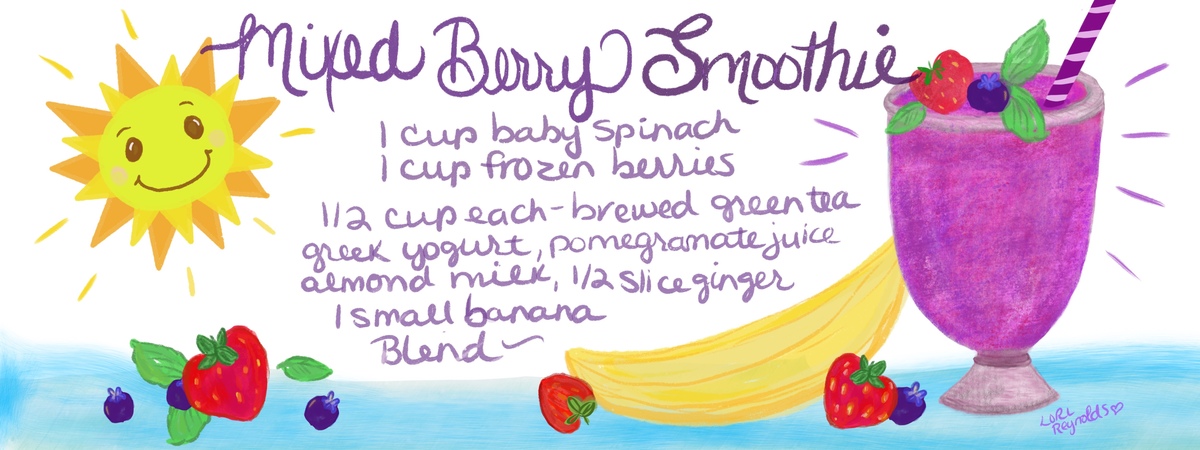 Mixed Berry Smoothie
1 cup baby spinach
1 cup frozen berries
1/2 cup each-brewed green tea
greek yogurt, pomegranate juice
almond milk, 1/2 slice ginger
1 small banana
Blend
LORI
Reynolds♡